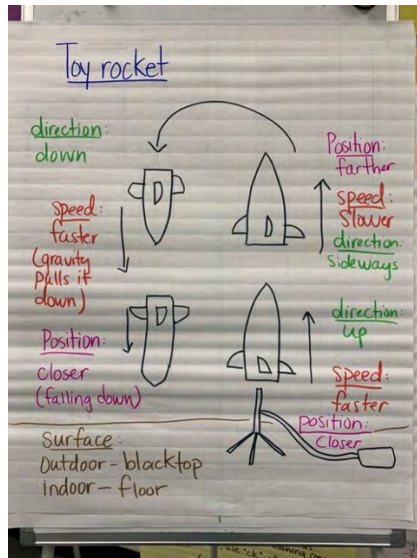 Toy rocket
direction:
down
speed:
faster
(gravity
pulls it
down)
Position:
closer
(falling down)
Position:
farther
speed:
slower
direction:
sideways
direction:
up
speed:
faster
position:
closer
D
D
D
D
Surface:
Outdoor - blacktop
indoor - floor